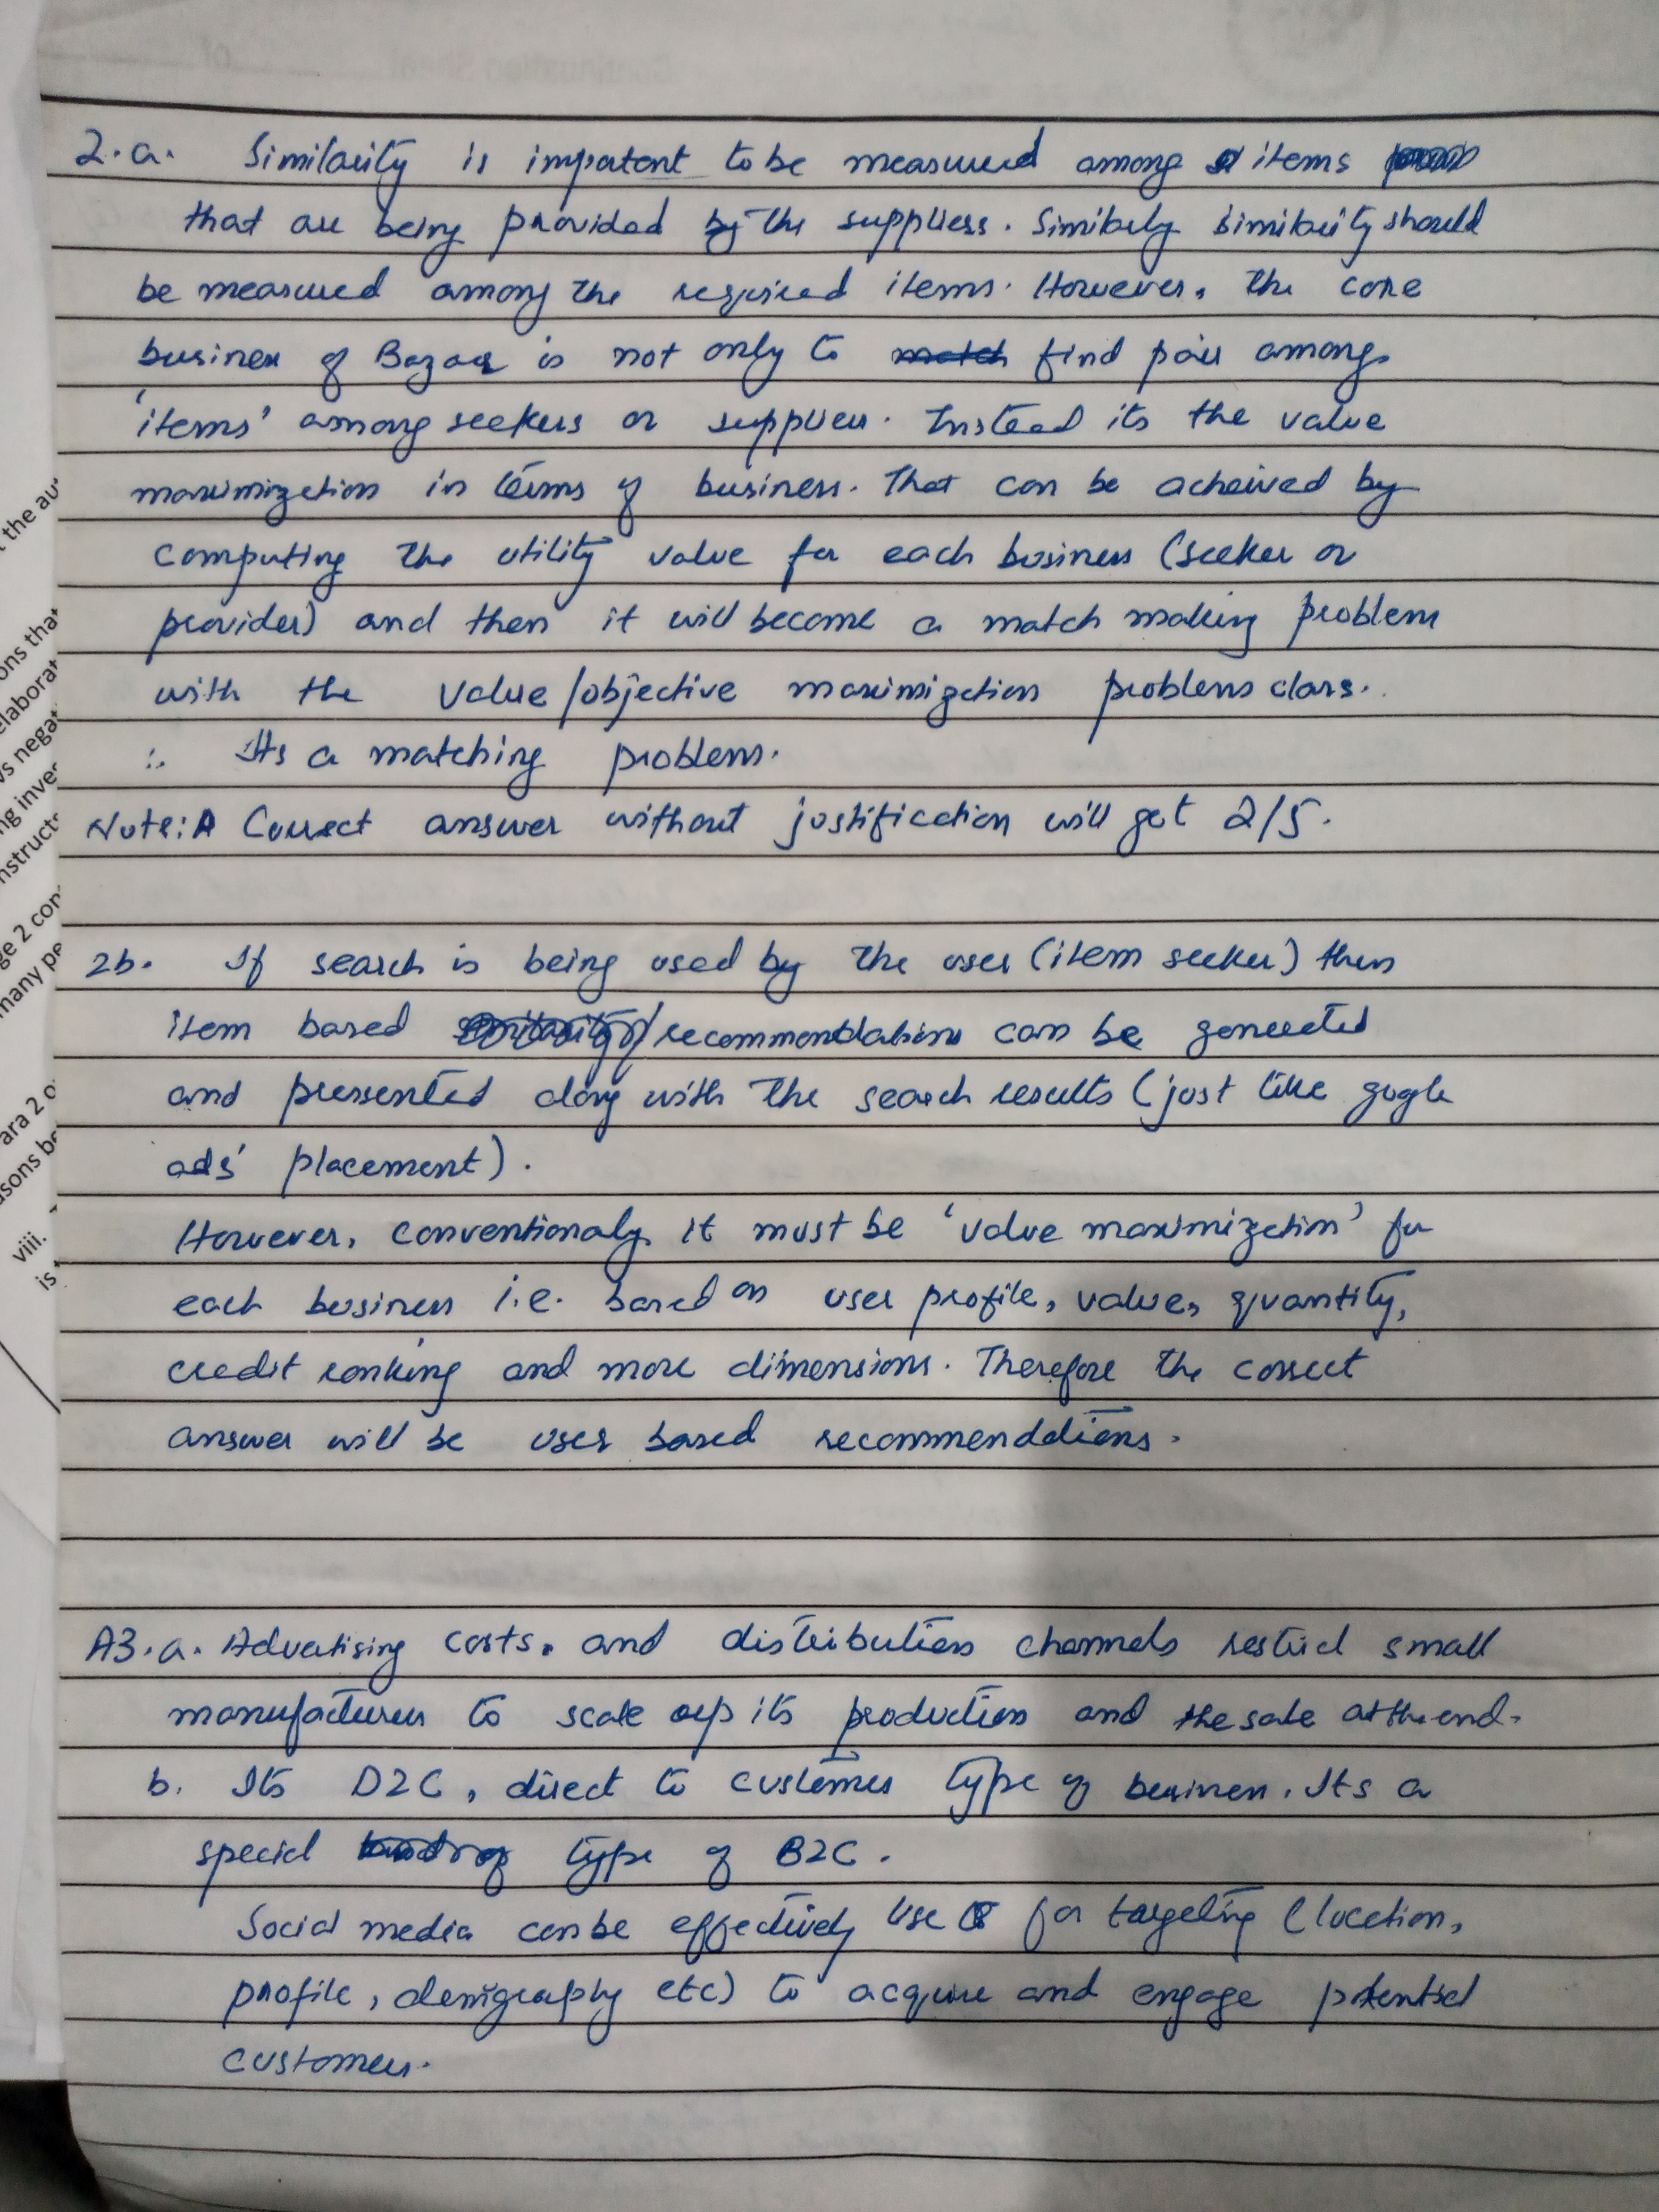 2.a. Similarity is impotent to be measured among items
that are being provided by the suppliers. Similarly similarity should
be measured among the required items. However, the core
business of Bazaar is not only to match find pair among
'items' among seekers or suppliers. Instead its the value
maximization in terms of business. That can be acheived by
computing the utility value for each business (seeker or
provider) and then it will become a match making problem
with the value/objective maximization problems class.
∴ Its a matching problem.
Note: A Correct answer without justification will get 2/5.
2b. If search is being used by the user (item seeker) then
item based recommendations can be generated
and pressented along with the search results (just like gogle
ads' placement).
However, conventionaly it must be 'value maximization' for
each business i.e. based on user profile, value, quantity,
credit ranking and more dimensions. Therefore the correct
answer will be user based recommendations.
A3.a. Advertising costs, and distribution channels restrict small
manufacturers to scale up its production and the sale at the end.
b. Its D2C, direct to customer type of business. Its a
special type of B2C.
Social media can be effectively use for targeting (location,
profile, demigraphy etc) to acquire and engage potential
customers.
t the au
ons that
elaborat
vs negat
ng inves
nstruct
ge 2 con
many pe
ara 2 o
sons be
viii.
is